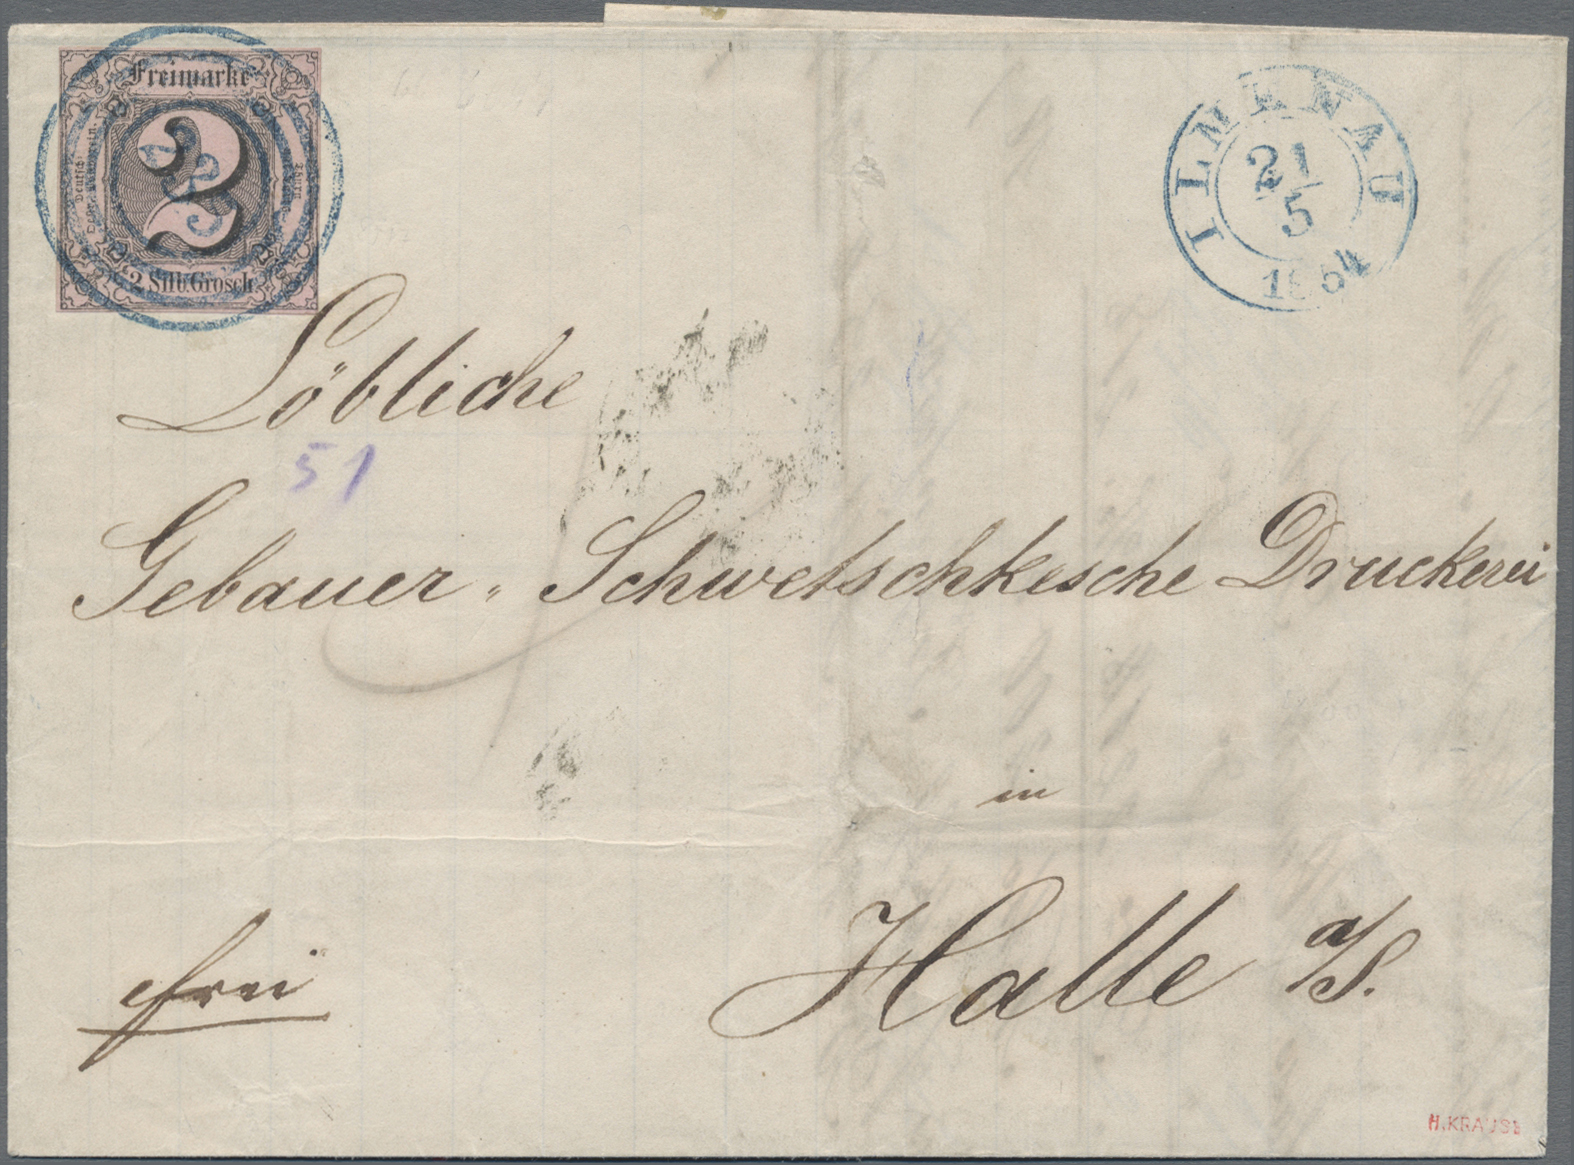 Freimarke
2
2 Silb. Grosch.
ILMENAU
21/5
1854
Löbliche
51
Gebauer-Schwetschkesche Druckerei
in
Halle a/S.
frei
H. KRAUSE